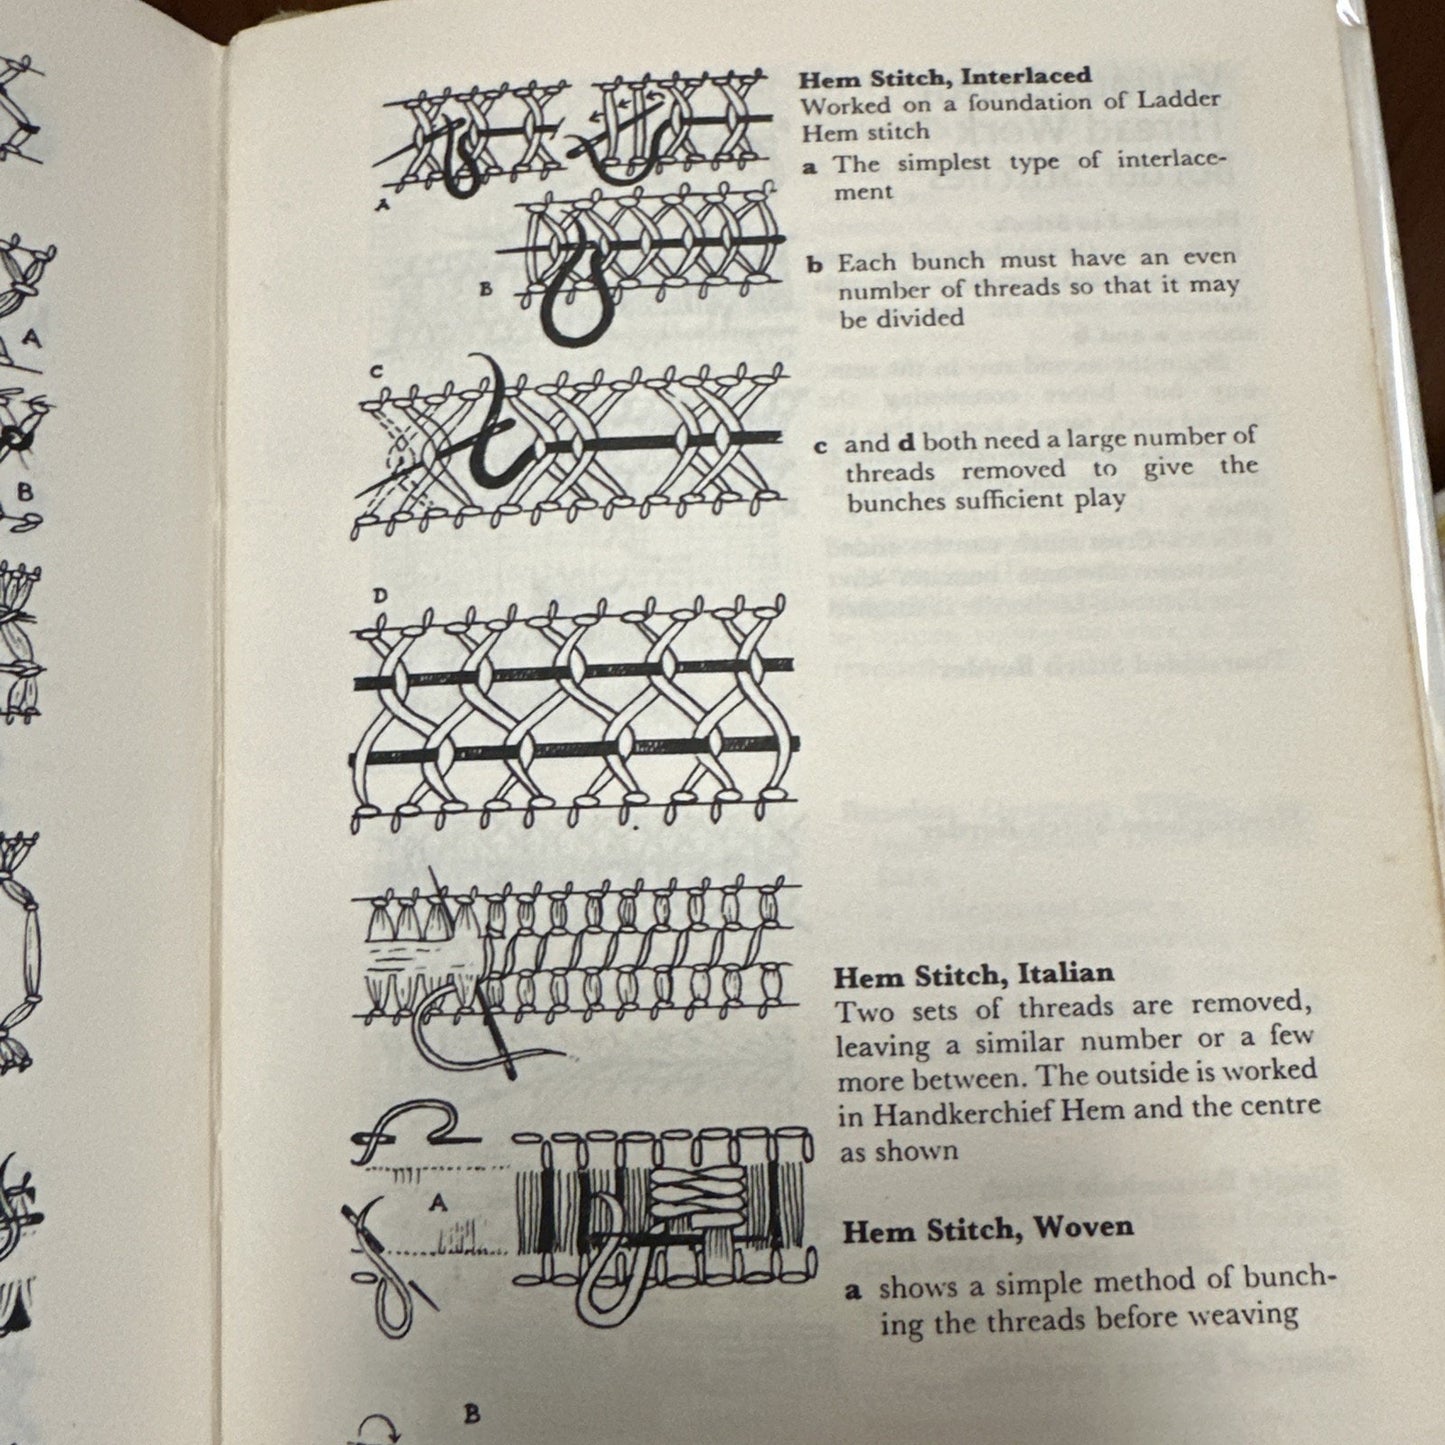 Hem Stitch, Interlaced
Worked on a foundation of Ladder
Hem stitch
a The simplest type of interlace-
ment
b Each bunch must have an even
number of threads so that it may
be divided
c and d both need a large number of
threads removed to give the
bunches sufficient play
Hem Stitch, Italian
Two sets of threads are removed,
leaving a similar number or a few
more between. The outside is worked
in Handkerchief Hem and the centre
as shown
Hem Stitch, Woven
a shows a simple method of bunch-
ing the threads before weaving
A
B
C
D
A
B
A
B